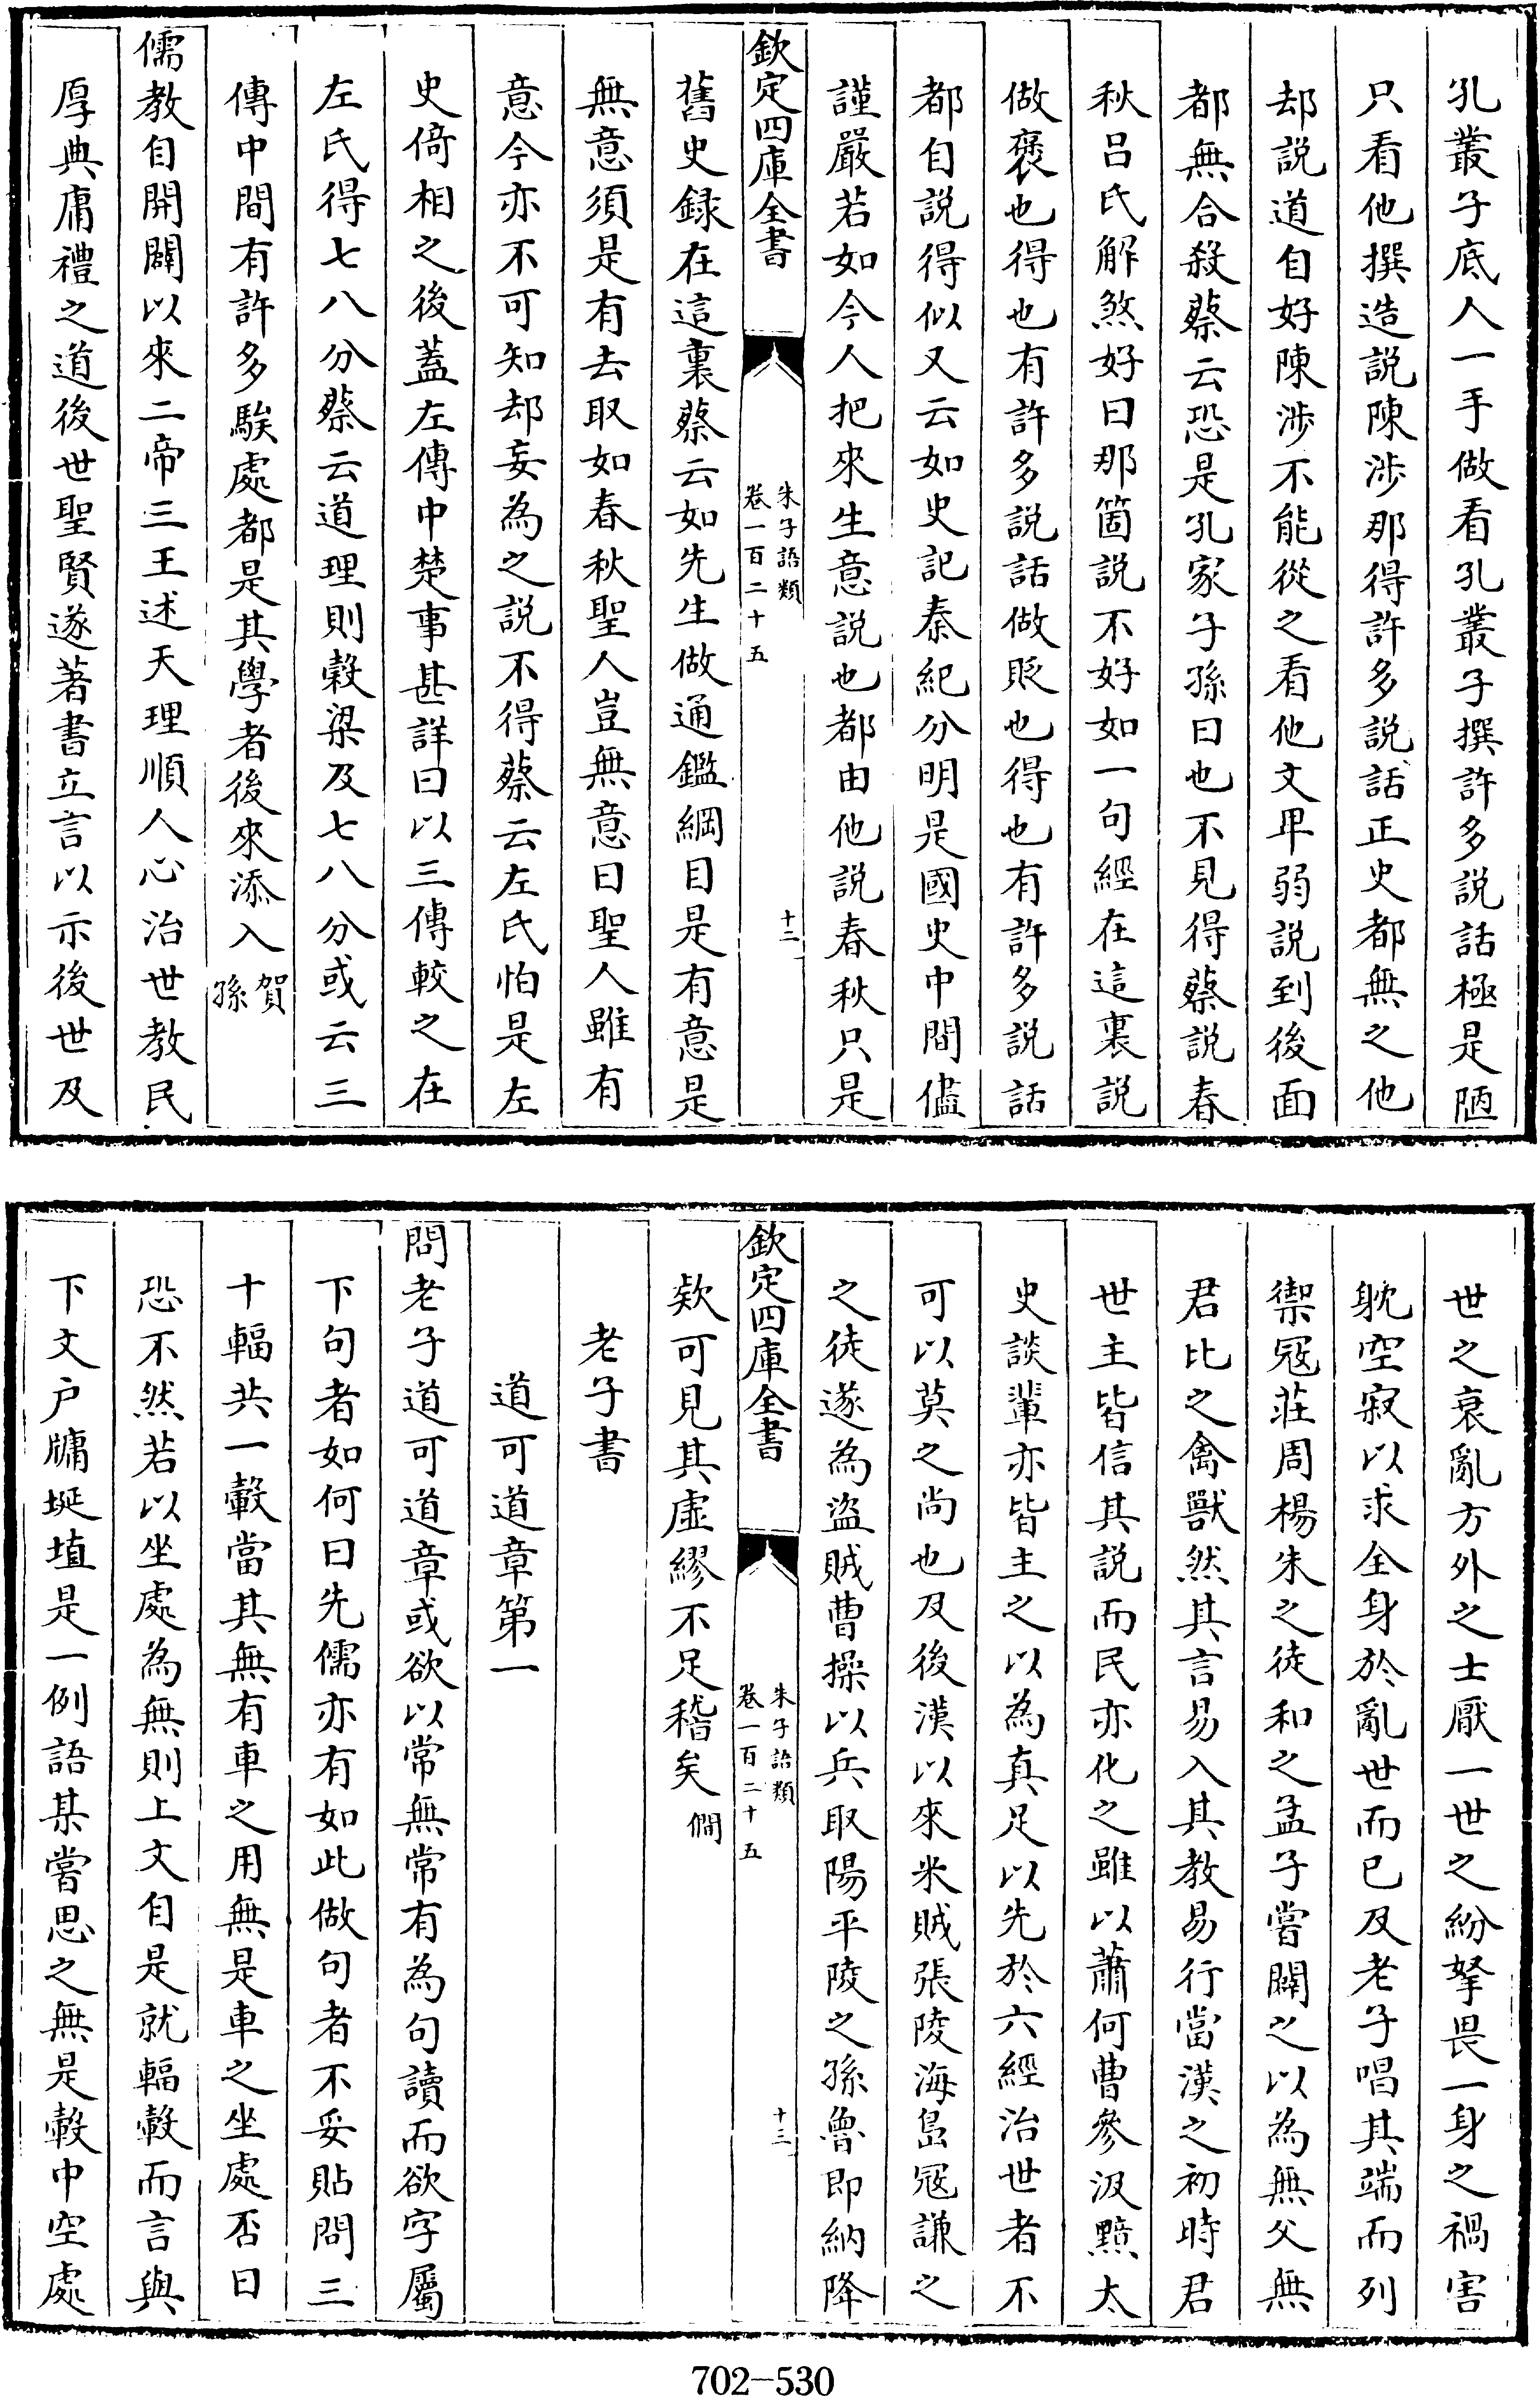 孔叢子底人一手做看孔叢子撰許多説話極是陋
只看他撰造説陳渉那得許多説話正史都無之他
却説道自好陳渉不能從之看他文卑弱説到後面
都無合殺蔡云恐是孔家子孫曰也不見得蔡説春
秋呂氏解煞好曰那箇説不好如一句經在這裏説
做襃也得也有許多説話做貶也得也有許多説話
都自説得似又云如史記秦紀分明是國史中間儘
謹嚴若如今人把來生意説也都由他説春秋只是
欽定四庫全書
朱子語類
卷一百二十五
十二
舊史録在這裏蔡云如先生做通鑑綱目是有意是
無意須是有去取如春秋聖人豈無意曰聖人雖有
意今亦不可知却妄為之説不得蔡云左氏怕是左
史倚相之後蓋左傳中楚事甚詳曰以三傳較之在
左氏得七八分蔡云道理則穀梁及七八分或云三
傳中間有許多騃處都是其學者後來添入賀孫
儒教自開闢以來二帝三王述天理順人心治世教民
厚典庸禮之道後世聖賢遂著書立言以示後世及
世之衰亂方外之士厭一世之紛拏畏一身之禍害
耽空寂以求全身於亂世而已及老子唱其端而列
禦冦莊周楊朱之徒和之孟子嘗闢之以為無父無
君比之禽獸然其言易入其教易行當漢之初時君
世主皆信其説而民亦化之雖以蕭何曹參汲黯太
史談輩亦皆主之以為真足以先於六經治世者不
可以莫之尚也及後漢以來米賊張陵海島冦謙之
之徒遂為盜賊曹操以兵取陽平陵之孫魯即納降
欽定四庫全書
朱子語類
卷一百二十五
十三
欵可見其虛繆不足稽矣僩
老子書
道可道章第一
問老子道可道章或欲以常無常有為句讀而欲字屬
下句者如何曰先儒亦有如此做句者不妥貼問三
十輻共一轂當其無有車之用無是車之坐處否曰
恐不然若以坐處為無則上文自是就輻轂而言與
下文户牗埏埴是一例語某嘗思之無是轂中空處
702-530